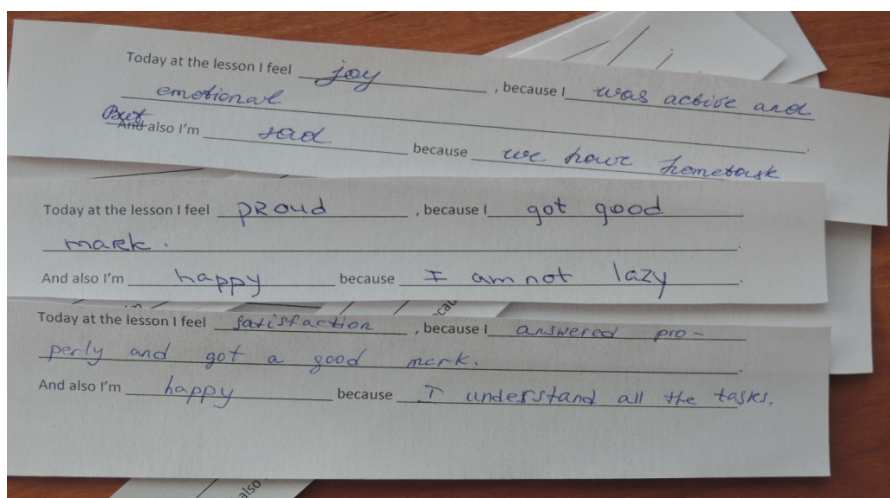 Today at the lesson I feel joy , because I was active and
emotional .
But also I'm sad because we have hometask
Today at the lesson I feel pRoud , because I got good
mark. .
And also I'm happy because I am not lazy .
Today at the lesson I feel satisfaction , because I answered pro-
perly and got a good mark. .
And also I'm happy because I understand all the tasks.
also